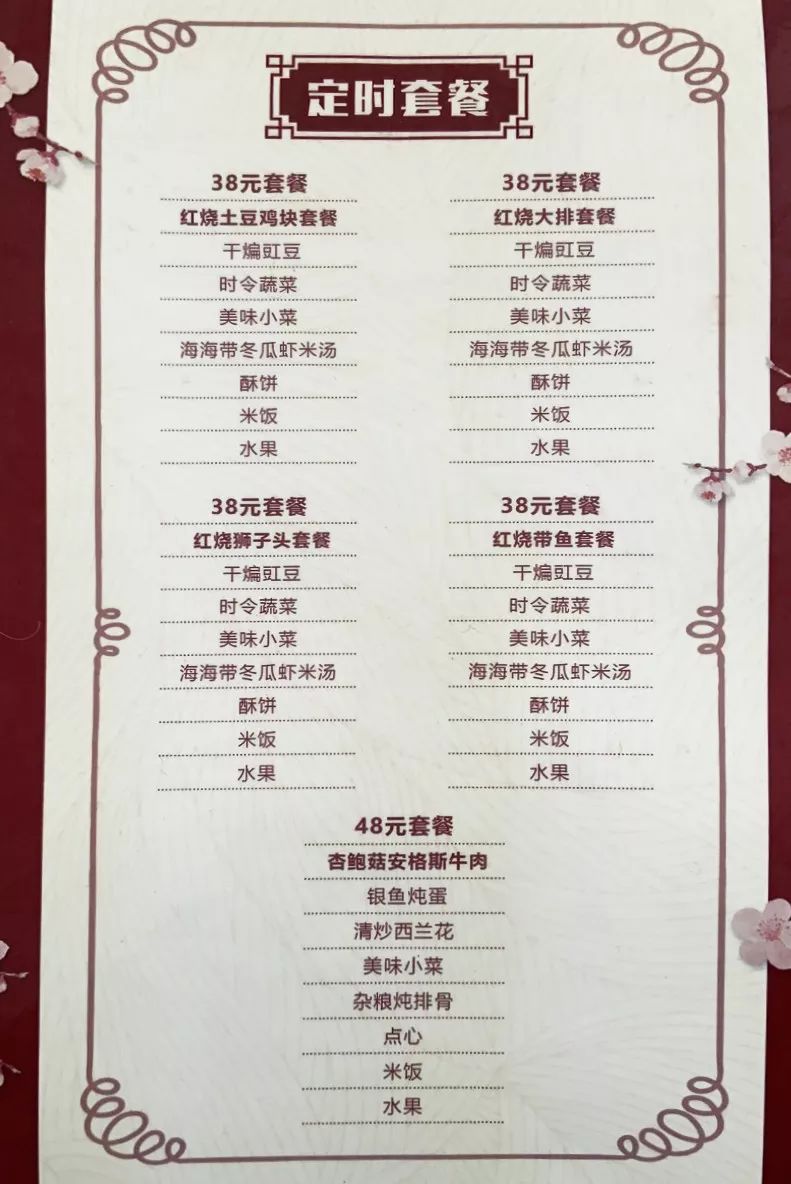 定时套餐
38元套餐
红烧土豆鸡块套餐
干煸豇豆
时令蔬菜
美味小菜
海海带冬瓜虾米汤
酥饼
米饭
水果
38元套餐
红烧大排套餐
干煸豇豆
时令蔬菜
美味小菜
海海带冬瓜虾米汤
酥饼
米饭
水果
38元套餐
红烧狮子头套餐
干煸豇豆
时令蔬菜
美味小菜
海海带冬瓜虾米汤
酥饼
米饭
水果
38元套餐
红烧带鱼套餐
干煸豇豆
时令蔬菜
美味小菜
海海带冬瓜虾米汤
酥饼
米饭
水果
48元套餐
杏鲍菇安格斯牛肉
银鱼炖蛋
清炒西兰花
美味小菜
杂粮炖排骨
点心
米饭
水果